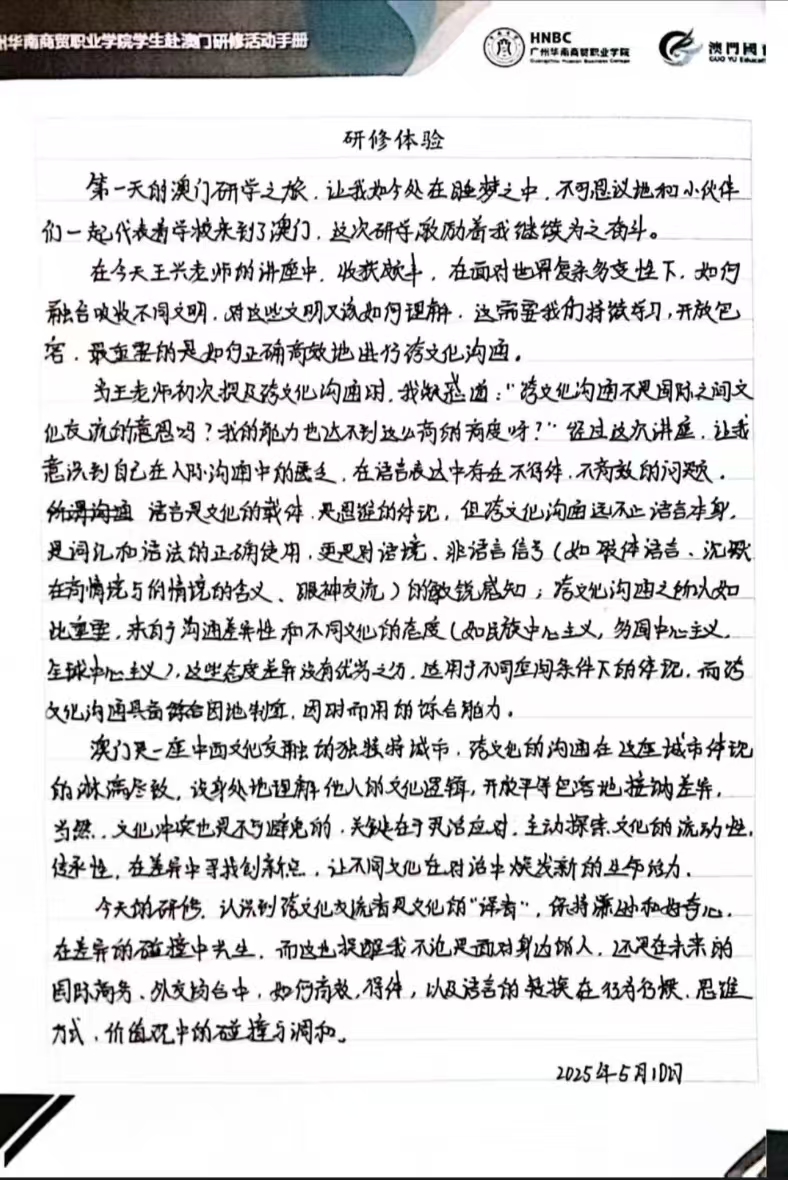 州华南商贸职业学院学生赴澳门研修活动手册
HNBC
广州华南商贸职业学院
Guangzhou Huanan Business College
澳門國
GUO YU Educat
研修体验
第一天的澳门研学之旅，让我如今处在睡梦之中，不可思议地和小伙伴
们一起代表着学校来到了澳门，这次研学激励着我继续为之奋斗。
在今天王兴老师的讲座中，收获颇丰，在面对世界复杂多变性下，如何
融合吸收不同文明，对这些文明又该如何理解，这需要我们持续学习，开放包
容，最重要的是如何正确高效地进行跨文化沟通。
当王老师初次提及跨文化沟通时，我疑惑道："跨文化沟通不是国际之间文
化交流的意思吗？我的能力也达不到这么高的高度呀？"经过这次讲座，让我
意识到自己在人际沟通中的匮乏，在语言表达中存在不得体，不高效的问题。
所谓沟通 语言是文化的载体，是思维的体现，但跨文化沟通远不止语言本身，
是词汇和语法的正确使用，更是对语境、非语言信号（如肢体语言、沉默
在高情境与低情境的含义、眼神交流）的敏锐感知；跨文化沟通之所以如
此重要，来自于沟通差异性和不同文化的态度（如民族中心主义，多国中心主义，
全球中心主义），这些态度差异没有优劣之分，适用于不同空间条件下的体现，而跨
文化沟通具备综合因地制宜，因时而用的综合能力。
澳门是一座中西文化交融的独特城市，跨文化的沟通在这座城市体现
的淋漓尽致，设身处地理解他人的文化逻辑，开放平等包容地接纳差异，
当然，文化冲突也是不可避免的，关键在于灵活应对，主动探索文化的流动性，
传承性，在差异中寻找创新点，让不同文化在对话中焕发新的生命活力。
今天的研修，认识到跨文化交流者是文化的"译者"，保持谦逊和好奇心，
在差异的碰撞中共生，而这也提醒我不论是面对身边的人，还是在未来的
国际商务、外交场合中，如何高效，得体，以及语言的转换在行为习惯、思维
方式，价值观中的碰撞与调和。
2025年5月10日